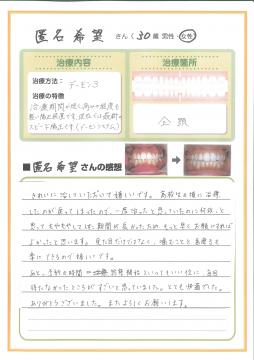 匿名希望 さん(30歳 男性・女性)
治療内容
治療箇所
治療方法：デーモン3
治療の特徴
治療期間が短く痛みの程度も
悪い矯正装置です。現在では最新の
スピード矯正です(デーモンシステム)
全顎
■匿名希望さんの感想
きれいに治していただいて嬉しいです。高校生の頃に治療
したのが戻ってしまったので、一度治ったと思っていたのに何故…と
思ってもやもやしていた期間が長かったため、もっと早くお願いすれば
よかったと思います。見た目だけではなく、噛むことも歯磨きも
楽にできるので嬉しいです。
あと、予約の時間＝診察開始といってもいい位に、毎回
待たなかったところがすごいと思っていました。とても快適でした。
ありがとうございました。またよろしくお願いします。